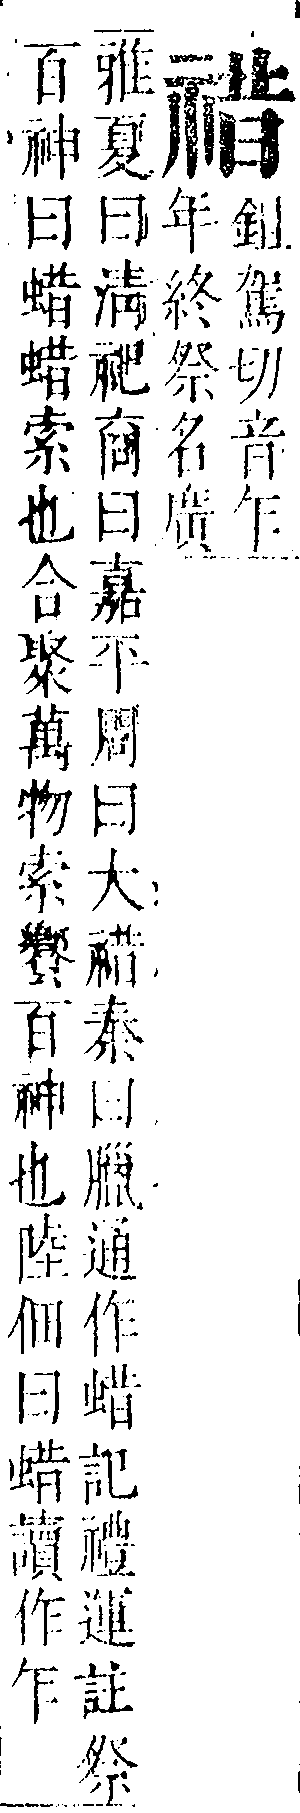 䄍
鉏駕切音乍
年終祭名廣
雅夏曰清祀商曰嘉平周曰大䄍秦曰臘通作蜡記禮運註祭
百神曰蜡蜡索也合聚萬物索饗百神也陸佃曰蜡讀作乍